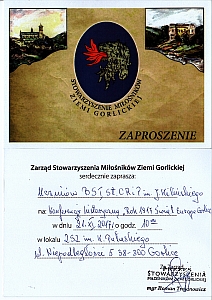 STOWARZYSZENIE MIŁOŚNIKÓW
ZIEMI GORLICKIEJ
ZAPROSZENIE
Zarząd Stowarzyszenia Miłośników Ziemi Gorlickiej
serdecznie zaprasza:
Uczniów im. J. Kilińskiego
na: Konferencję historyczną „Rok 1917 Świat Europa Gorlice
w dniu 21.XI.2017 o godz. 10
w lokalu ZSZ im. K. Pułaskiego
ul. Niepodległości 5 38-300 Gorlice
STOWARZYSZENIA
mgr Roman Trojanowicz